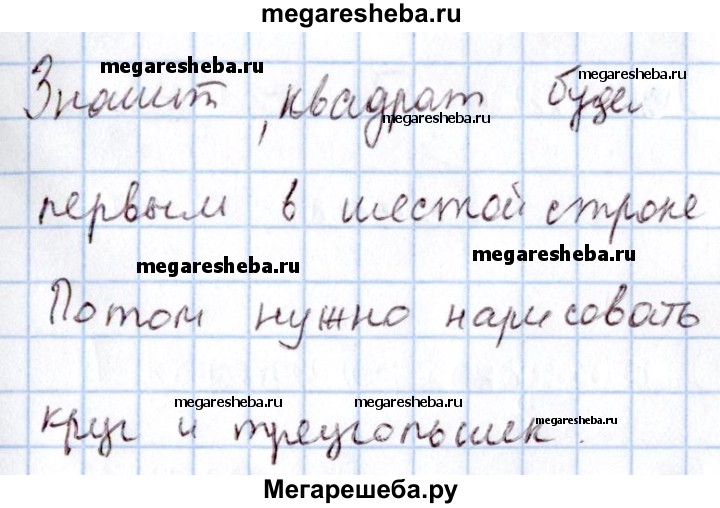 megaresheba.ru
megaresheba.ru
megaresheba.ru
Значит, квадрат буде
megaresheba.ru
первым в шестой строке
megaresheba.ru
megaresheba.ru
Потом нужно нарисовать
megaresheba.ru
megaresheba.ru
megaresheba.ru
круг и треугольник.
Мегарешеба.ру